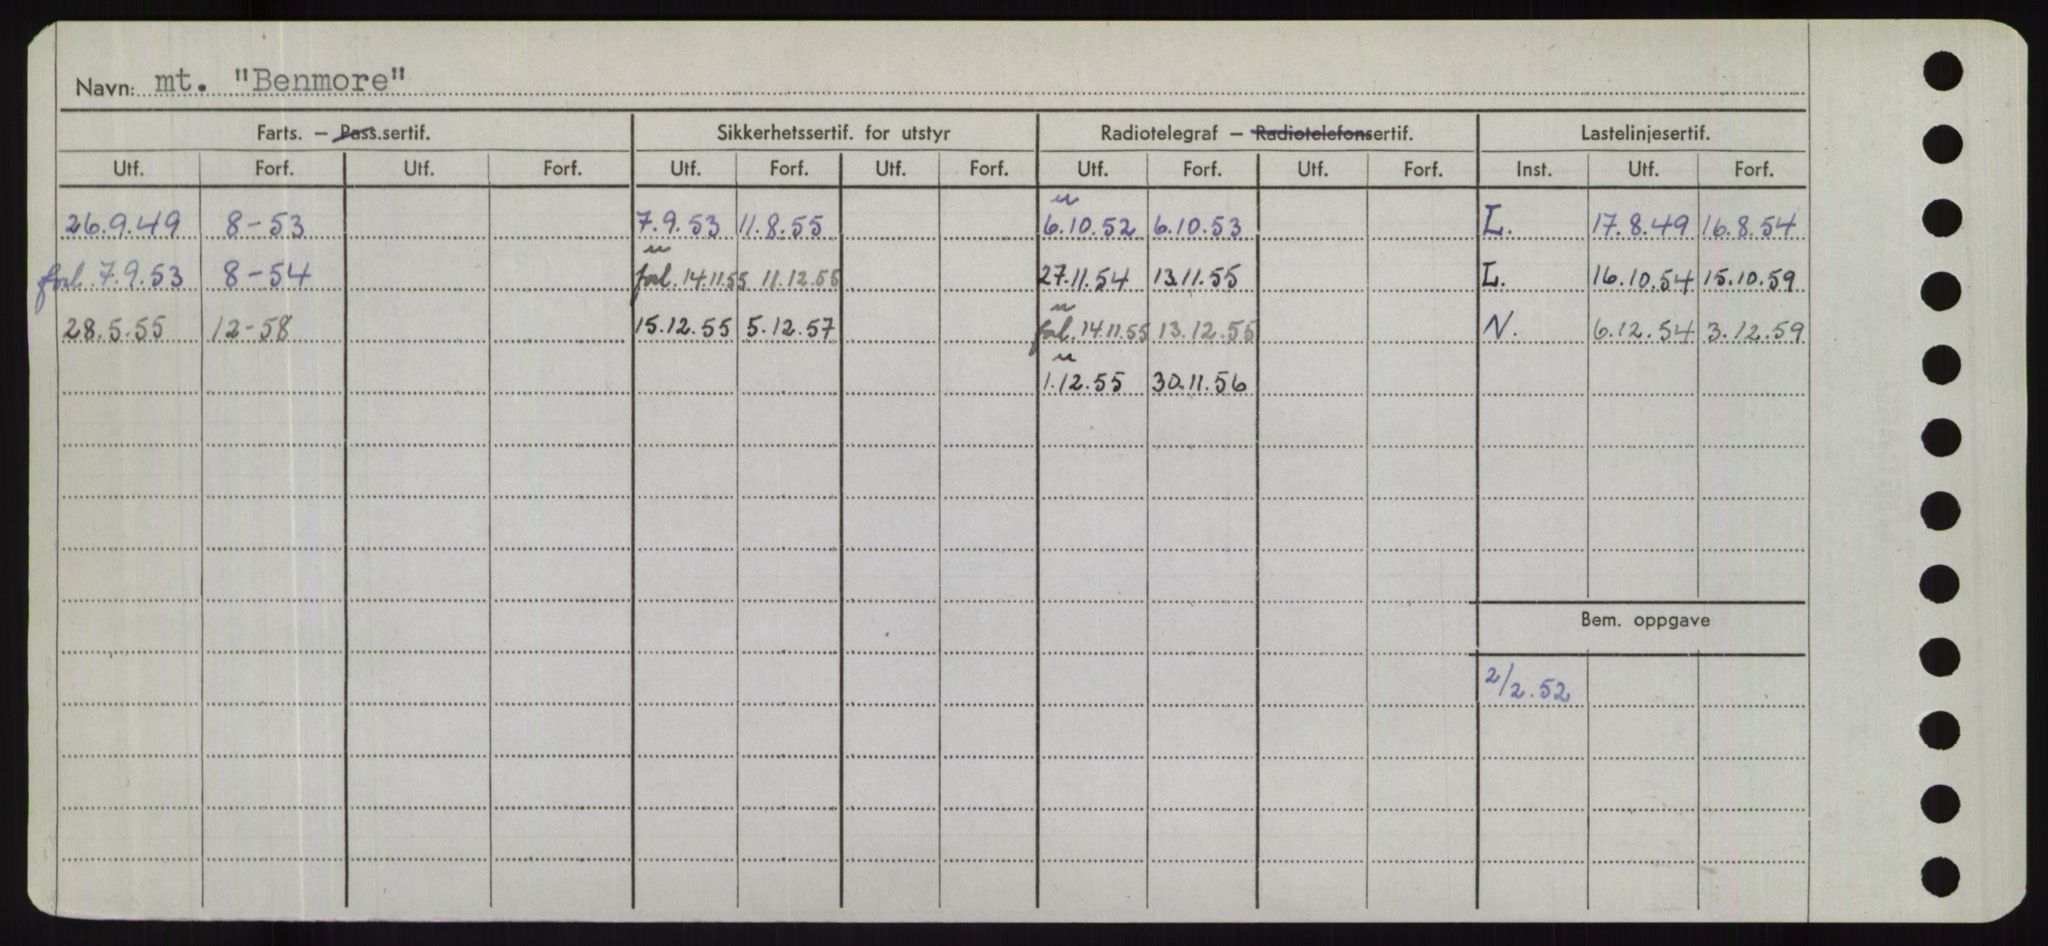 Navn: mt. "Benmore"
Farts. – Pass.sertif. Sikkerhetssertif. for utstyr Radiotelegraf – Radiotelefonsertif. Lastelinjesertif.
Utf. Forf. Utf. Forf. Utf. Forf. Utf. Forf. Utf. Forf. Utf. Forf. Inst. Utf. Forf.
26.9.49 8-53 7.9.53 11.8.55 6.10.52 6.10.53 L. 17.8.49 16.8.54
forl. 7.9.53 8-54 forl. 14.11.55 11.12.55 27.11.54 13.11.55 L. 16.10.54 15.10.59
28.5.55 12-58 15.12.55 5.12.57 forl. 14.11.55 13.12.55 N. 6.12.54 3.12.59
1.12.55 30.11.56
Bem. oppgave
2/2.52